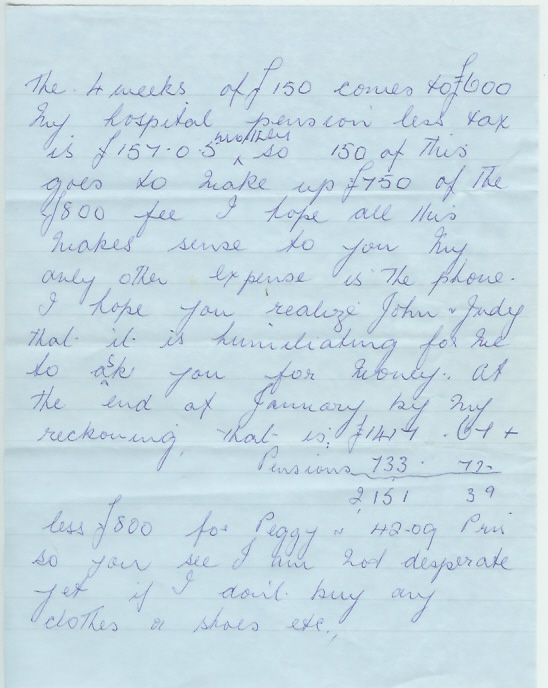 The 4 weeks of £150 comes to £600
My hospital pension less tax
is £157.0.5 monthly so 150 of this
goes to make up £750 of the
£800 fee I hope all this
makes sense to you My
only other expense is the phone.
I hope you realize John & Judy
that it is humiliating for me
to ask you for money. At
the end of January by my
reckoning, that is,
Pensions 733.72
2,151 39
less £800 for Peggy & 42.09 Pru
so you see I am not desperate
yet if I don't buy any
clothes or shoes etc.,